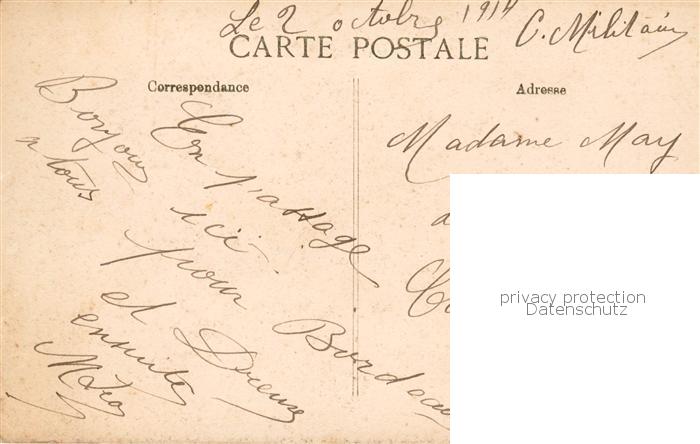 Le 2 octobre 1914
C. Militaire
CARTE POSTALE
Correspondance
Adresse
Bonjour
a tous
En passage
ici
pour Bordeaux
et Dreux
ensuite
Madame May
a
privacy protection
Datenschutz